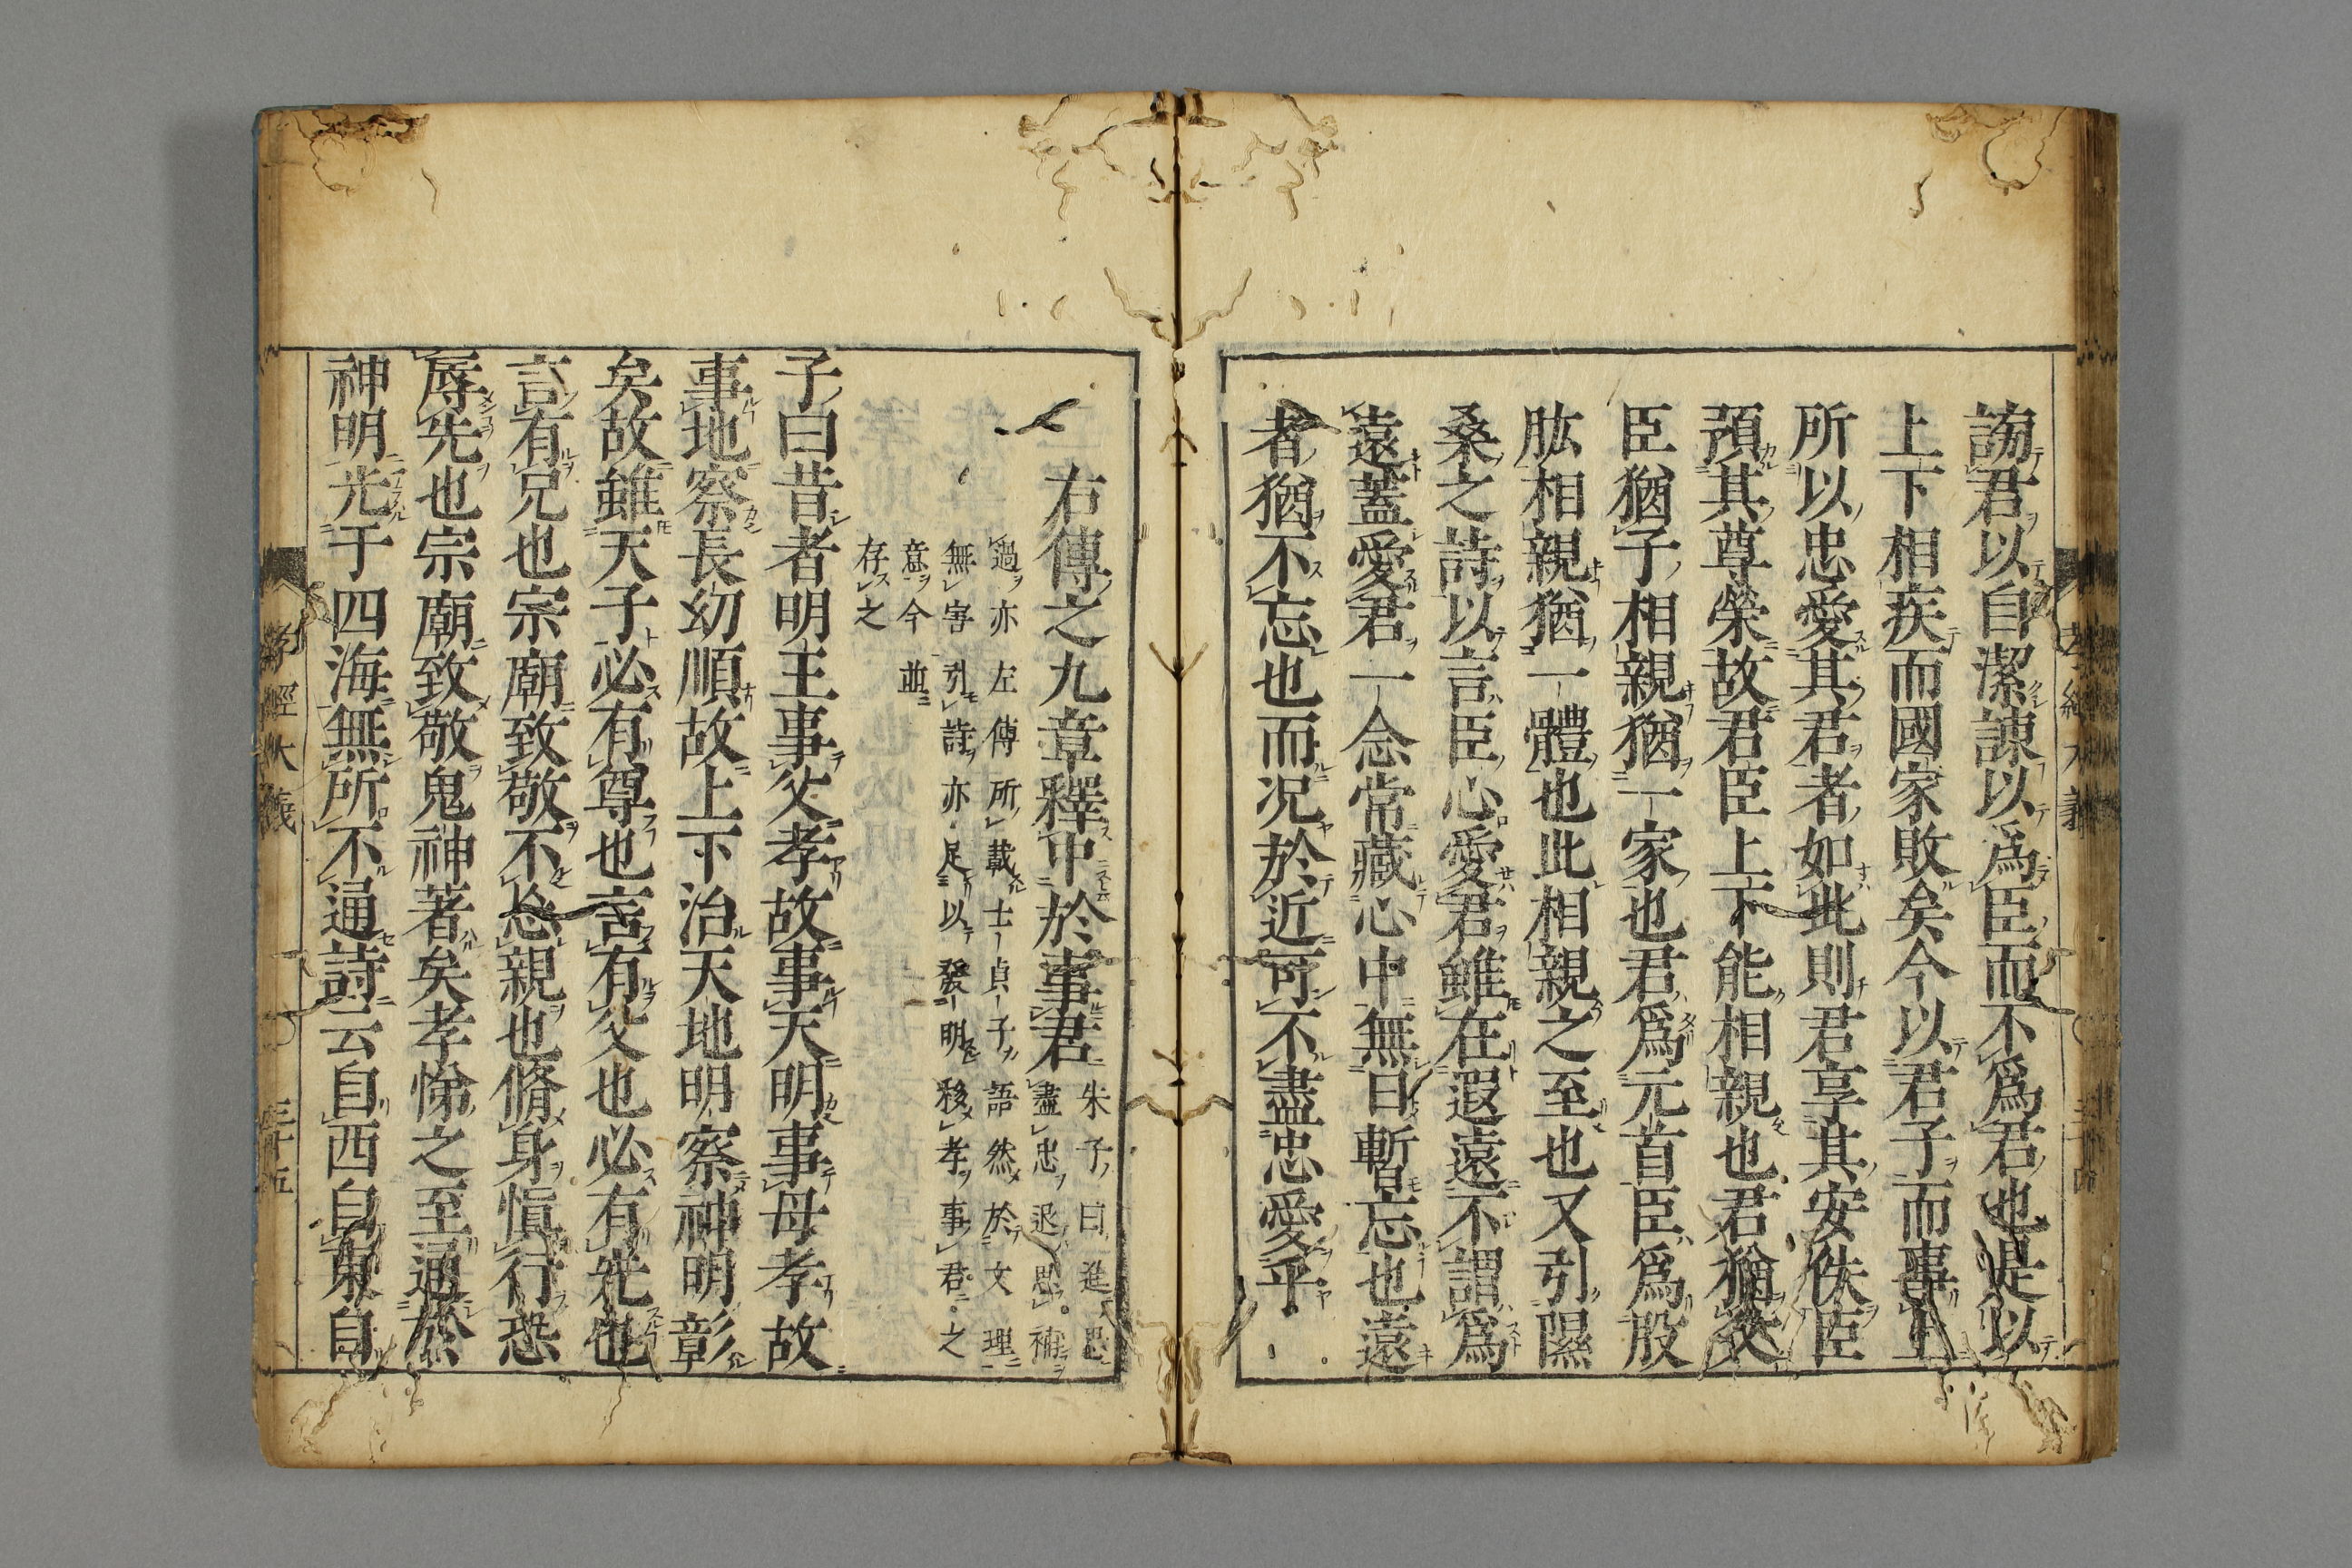 謗君以自潔諫以爲臣而不爲君也是以
上下相疾而國家敗矣今以君子而事上
所以忠愛其君者如此則君享其安佚臣
預其尊榮故君臣上下能相親也君猶父
臣猶子相親猶一家也君爲元首臣爲股
肱相親猶一體也此相親之至也又引隰
桑之詩以言臣心愛君雖在遐遠不謂爲
遠蓋愛君一念常藏心中無日暫忘也遠
者猶不忘也而况於近可不盡忠愛乎
右傳之九章釋中於事君
朱子曰進思
盡忠退思補
過亦左傳所載士貞子語然於文理
無害引詩亦足以發明移孝事君之
意今並
存之
子曰昔者明王事父孝故事天明事母孝故
事地察長幼順故上下治天地明察神明彰
矣故雖天子必有尊也言有父也必有先也
言有兄也宗廟致敬不忘親也脩身愼行恐
辱先也宗廟致敬鬼神著矣孝悌之至通於
神明光于四海無所不通詩云自西自東自
孝經大義
三十五